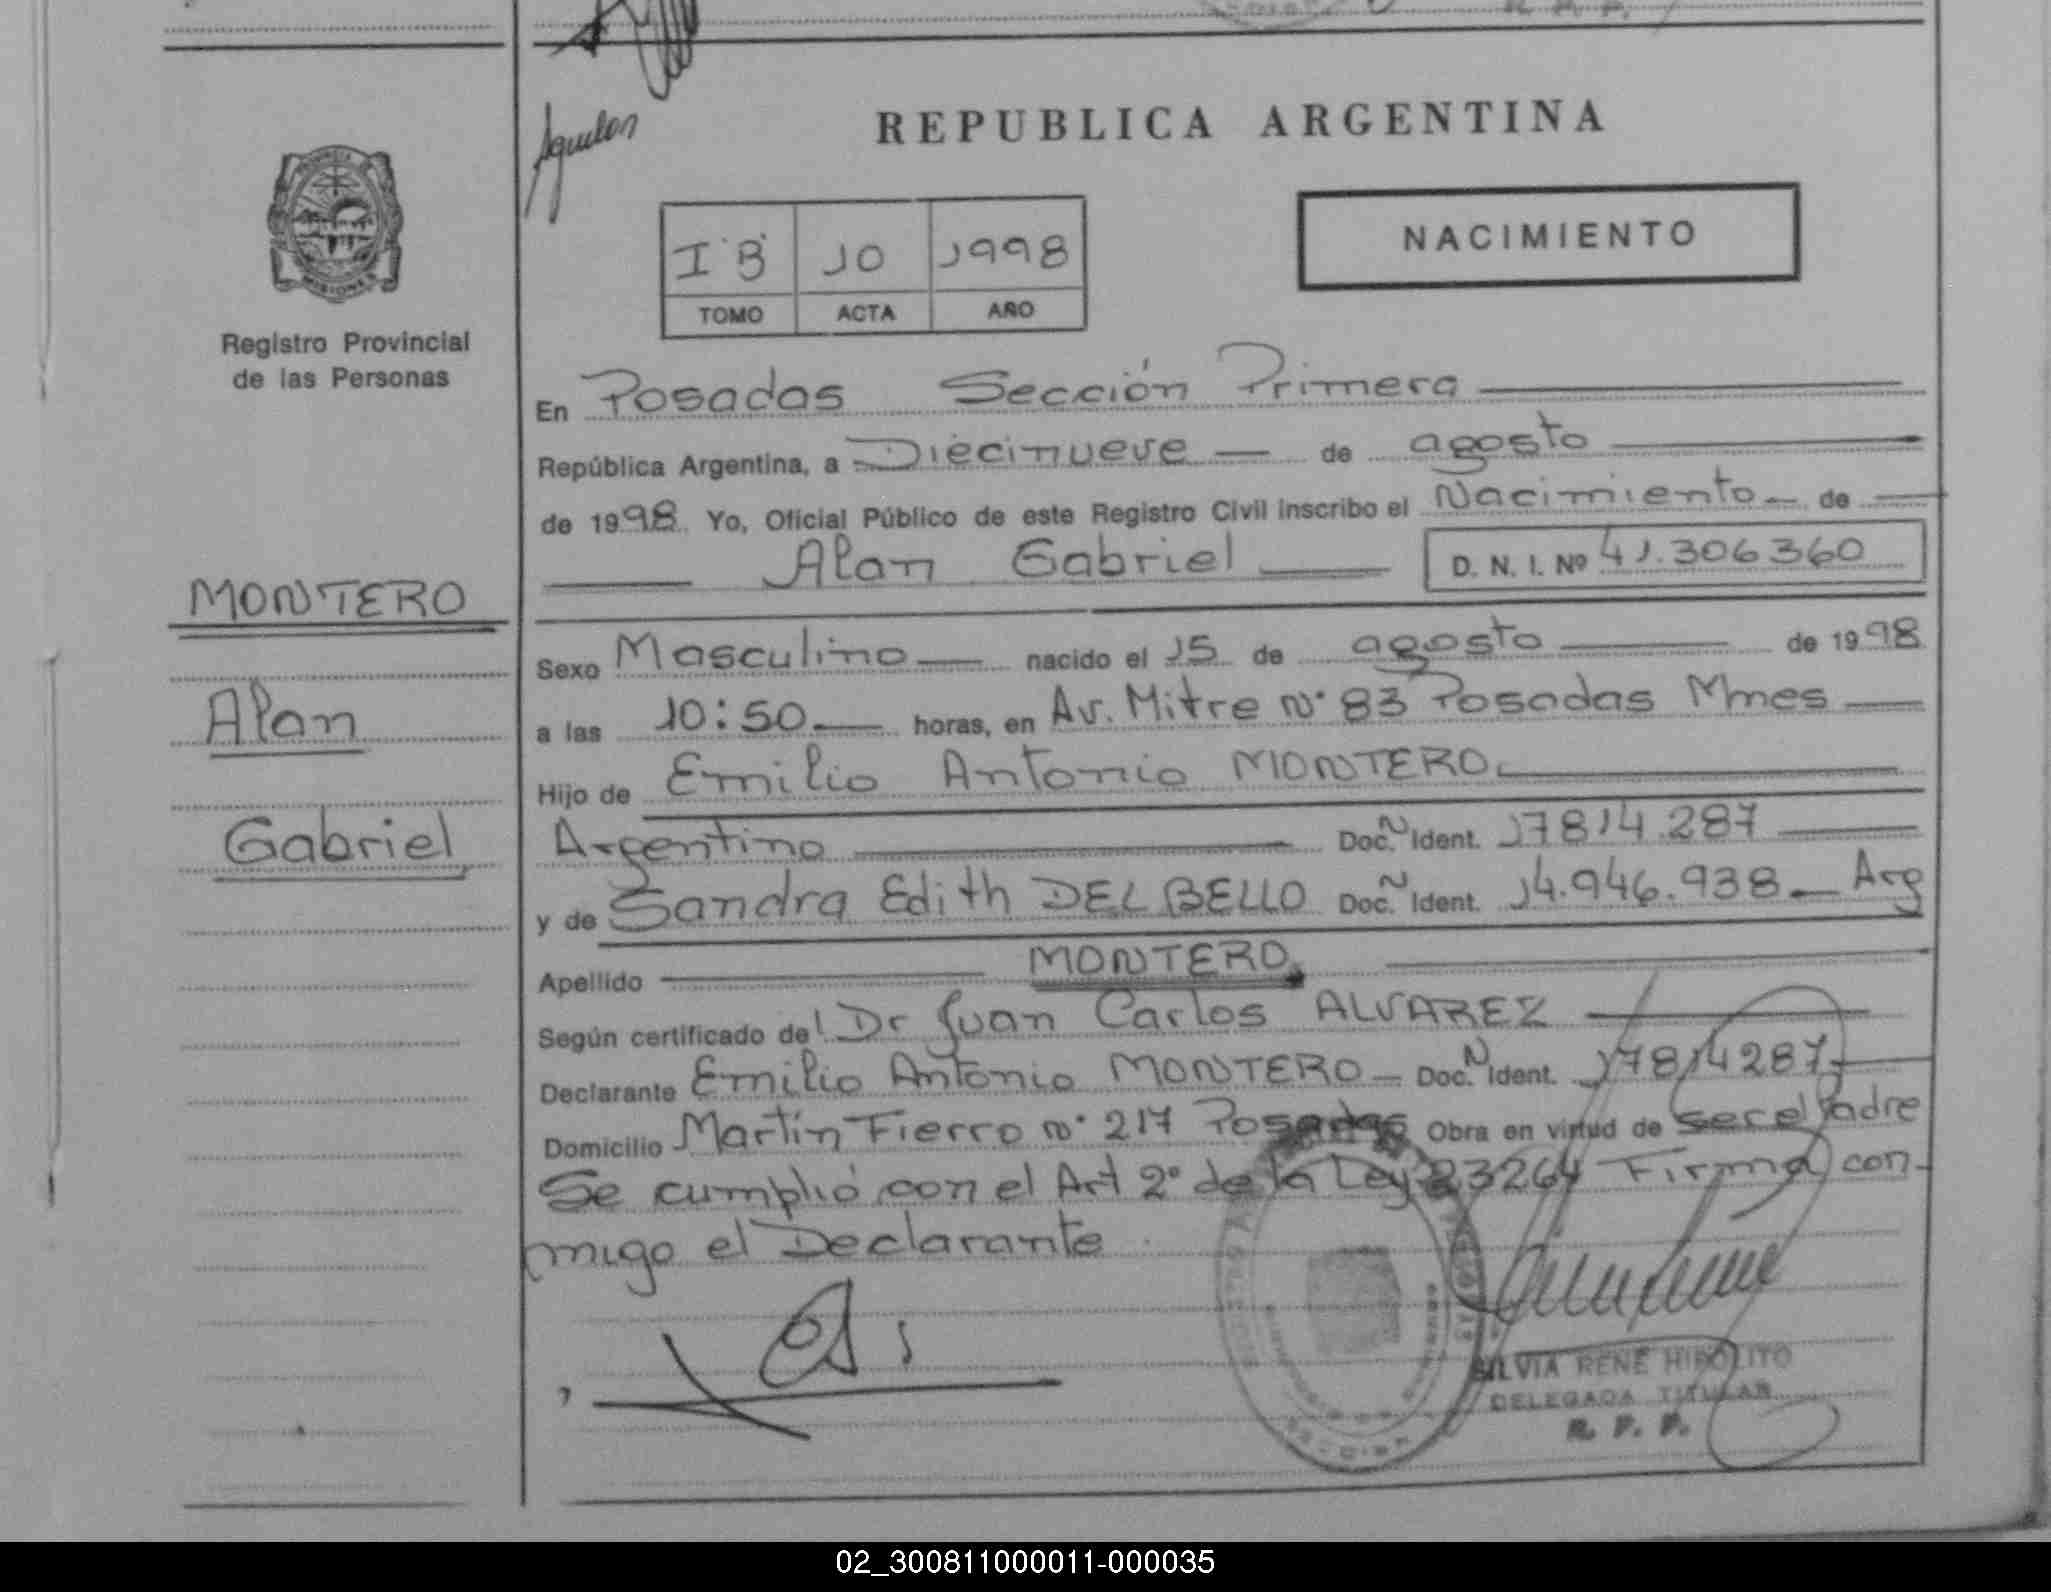 Aguilar
REPUBLICA ARGENTINA
NACIMIENTO
I "B" 10 1998
TOMO ACTA AÑO
Registro Provincial
de las Personas
MONTERO
Alan
Gabriel
En Posadas Sección Primera
República Argentina, a Diecinueve de agosto
de 1998 Yo, Oficial Público de este Registro Civil inscribo el Nacimiento de
Alan Gabriel D. N. I. Nº 41.306360
Sexo Masculino nacido el 15 de agosto de 1998
a las 10:50 horas, en Av. Mitre Nº 83 Posadas Mnes
Hijo de Emilio Antonio MONTERO
Argentino Doc. N Ident. 17814.287
y de Sandra Edith DEL BELLO Doc. N Ident. 14.946.938 Arg
Apellido MONTERO
Según certificado del Dr Juan Carlos ALVAREZ
Declarante Emilio Antonio MONTERO Doc. N Ident. 17814287
Domicilio Martín Fierro Nº 217 Posadas Obra en virtud de ser el Padre
Se cumplió con el Art 2º de la Ley 23264 Firma con-
migo el Declarante
SILVIA RENE HIPOLITO
DELEGADA TITULAR
R. P. P.
02_300811000011-000035